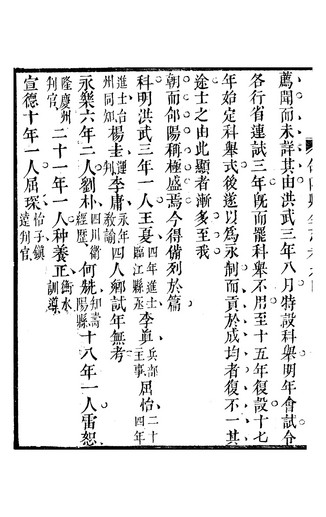 薦聞而未詳其由洪武三年八月特設科舉明年會試令
各行省連試三年旣而罷科舉不用至十五年復設十七
年始定科舉式後遂以為永制而貢於成均者復不一其
途士之由此顯者漸多至我
朝而郃陽稱極盛焉今得備列於篇
科明洪武三年一人王夏四年進士臨江縣丞李眞兵部主事屈怡二十四年
進士治州同知楊圭判李庸永年教諭四人鄉試年無考
永樂六年二人劉朴四川衛經歷何知嵩陽縣十八年一人雷恕
隆慶州判官二十一年一人种養正衡水訓導
宣德十年一人屈琛怡子鎭遠判官